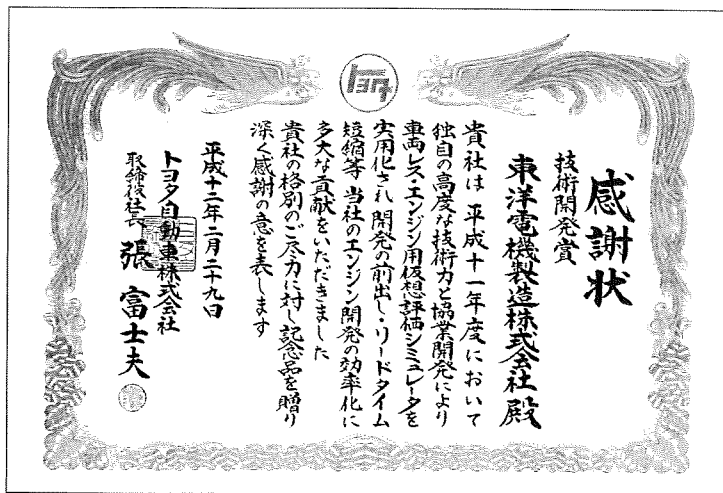 トヨタ
感謝状
技術開発賞
東洋電機製造株式会社殿
貴社は平成十一年度において
独自の高度な技術力と協業開発により
車両レス・エンジン用仮想評価シミュレータを
実用化され開発の前出し・リードタイム
短縮等当社のエンジン開発の効率化に
多大な貢献をいただきました
貴社の格別のご尽力に対し記念品を贈り
深く感謝の意を表します
平成十二年二月二十九日
トヨタ自動車株式会社
取締役社長 張富士夫